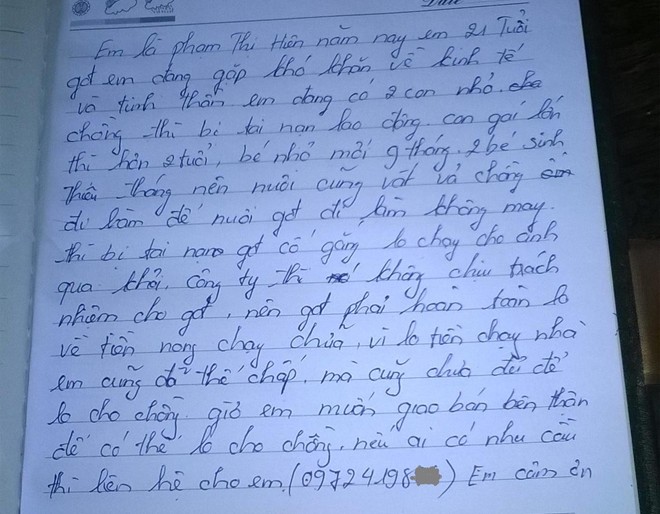 Em là phạm Thị Hiên năm nay em 21 Tuổi
gđ em đang gặp khó khăn, về kinh tế
và tinh thần em đang có 2 con nhỏ.
chồng thì bị tai nạn lao động. con gái lớn
thì hơn 2 tuổi, bé nhỏ mới 9 tháng. 2 bé sinh
thiếu tháng nên nuôi cũng vất vả chồng em
đi làm để nuôi gđ đi làm không may.
thì bị tai nạn gđ cố gắng lo chạy cho anh
qua khỏi. công ty thì không chịu trách
nhiệm cho gđ, nên gđ phải hoàn toàn lo
về tiền nong chạy chữa, vì lo tiền chạy nhà
em cũng đã thế chấp, mà cũng chưa đủ để
lo cho chồng. giờ em muốn giao bán bên thân
để có thể lo cho chồng, nếu ai có nhu cầu
thì liên hệ cho em, (09724198) Em cảm ơn